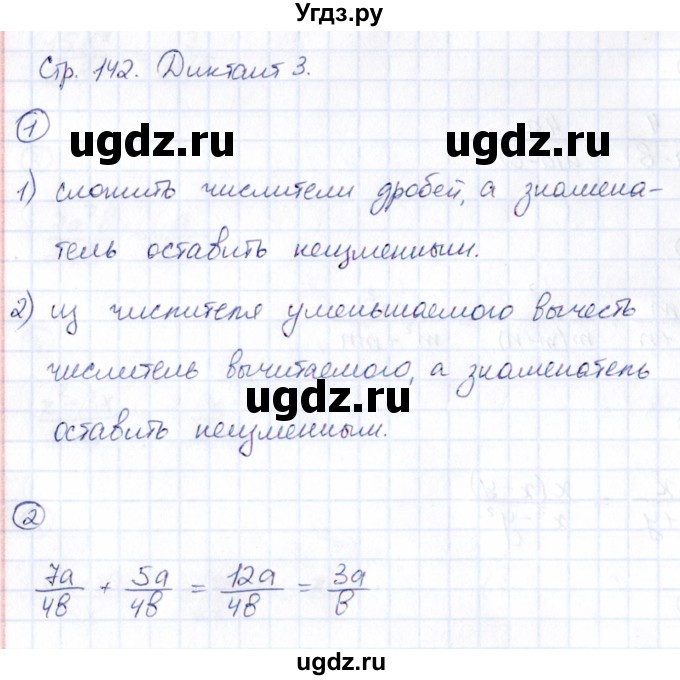 Угдз.ру
Стр. 142. Диктант 3.
1
ugdz.ru ugdz.ru
1) сложить числители дробей, а знамена-
тель оставить неизменным.
2) из числителя уменьшаемого вычесть
числитель вычитаемого, а знаменатель
ugdz.ru
оставить неизменным.
2
7a/4в + 5a/4в = 12a/4в = 3a/в
ugdz.ru